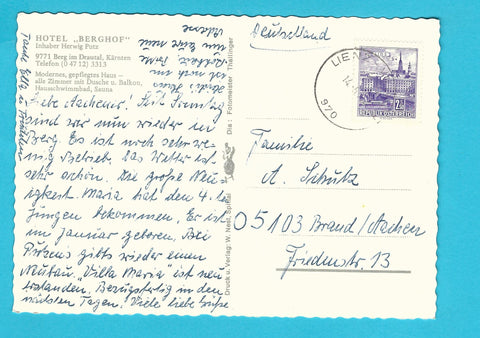 HOTEL „BERGHOF"
Inhaber Herwig Putz
9771 Berg im Drautal, Kärnten
Telefon (0 47 12) 3313
Modernes, gepflegtes Haus —
alle Zimmer mit Dusche u. Balkon,
Hausschwimmbad, Sauna
Liebe Aachener! Seit Sonntag
sind wir nun wieder in
Berg. Es ist noch sehr we-
nig Betrieb. Das Wetter ist
sehr schön. Die große Neu-
igkeit. Maria hat den 4. ten
Jungen bekommen. Er ist
im Januar geboren. Bei
Putzens gibts wieder einen
Neubau. „Villa Maria" ist neu
erstanden. Bezugsfertig in den
nächsten Tagen. Viele liebe Grüße
Druck u. Verlag: W. Neil, Spittal
Dia: Fotomeister Thallinger
Deutschland
LIENZ
9710
2.50
REPUBLIK ÖSTERREICH
Familie
A. Schütz
5103 Brand/Aachen
Friedenstr. 13